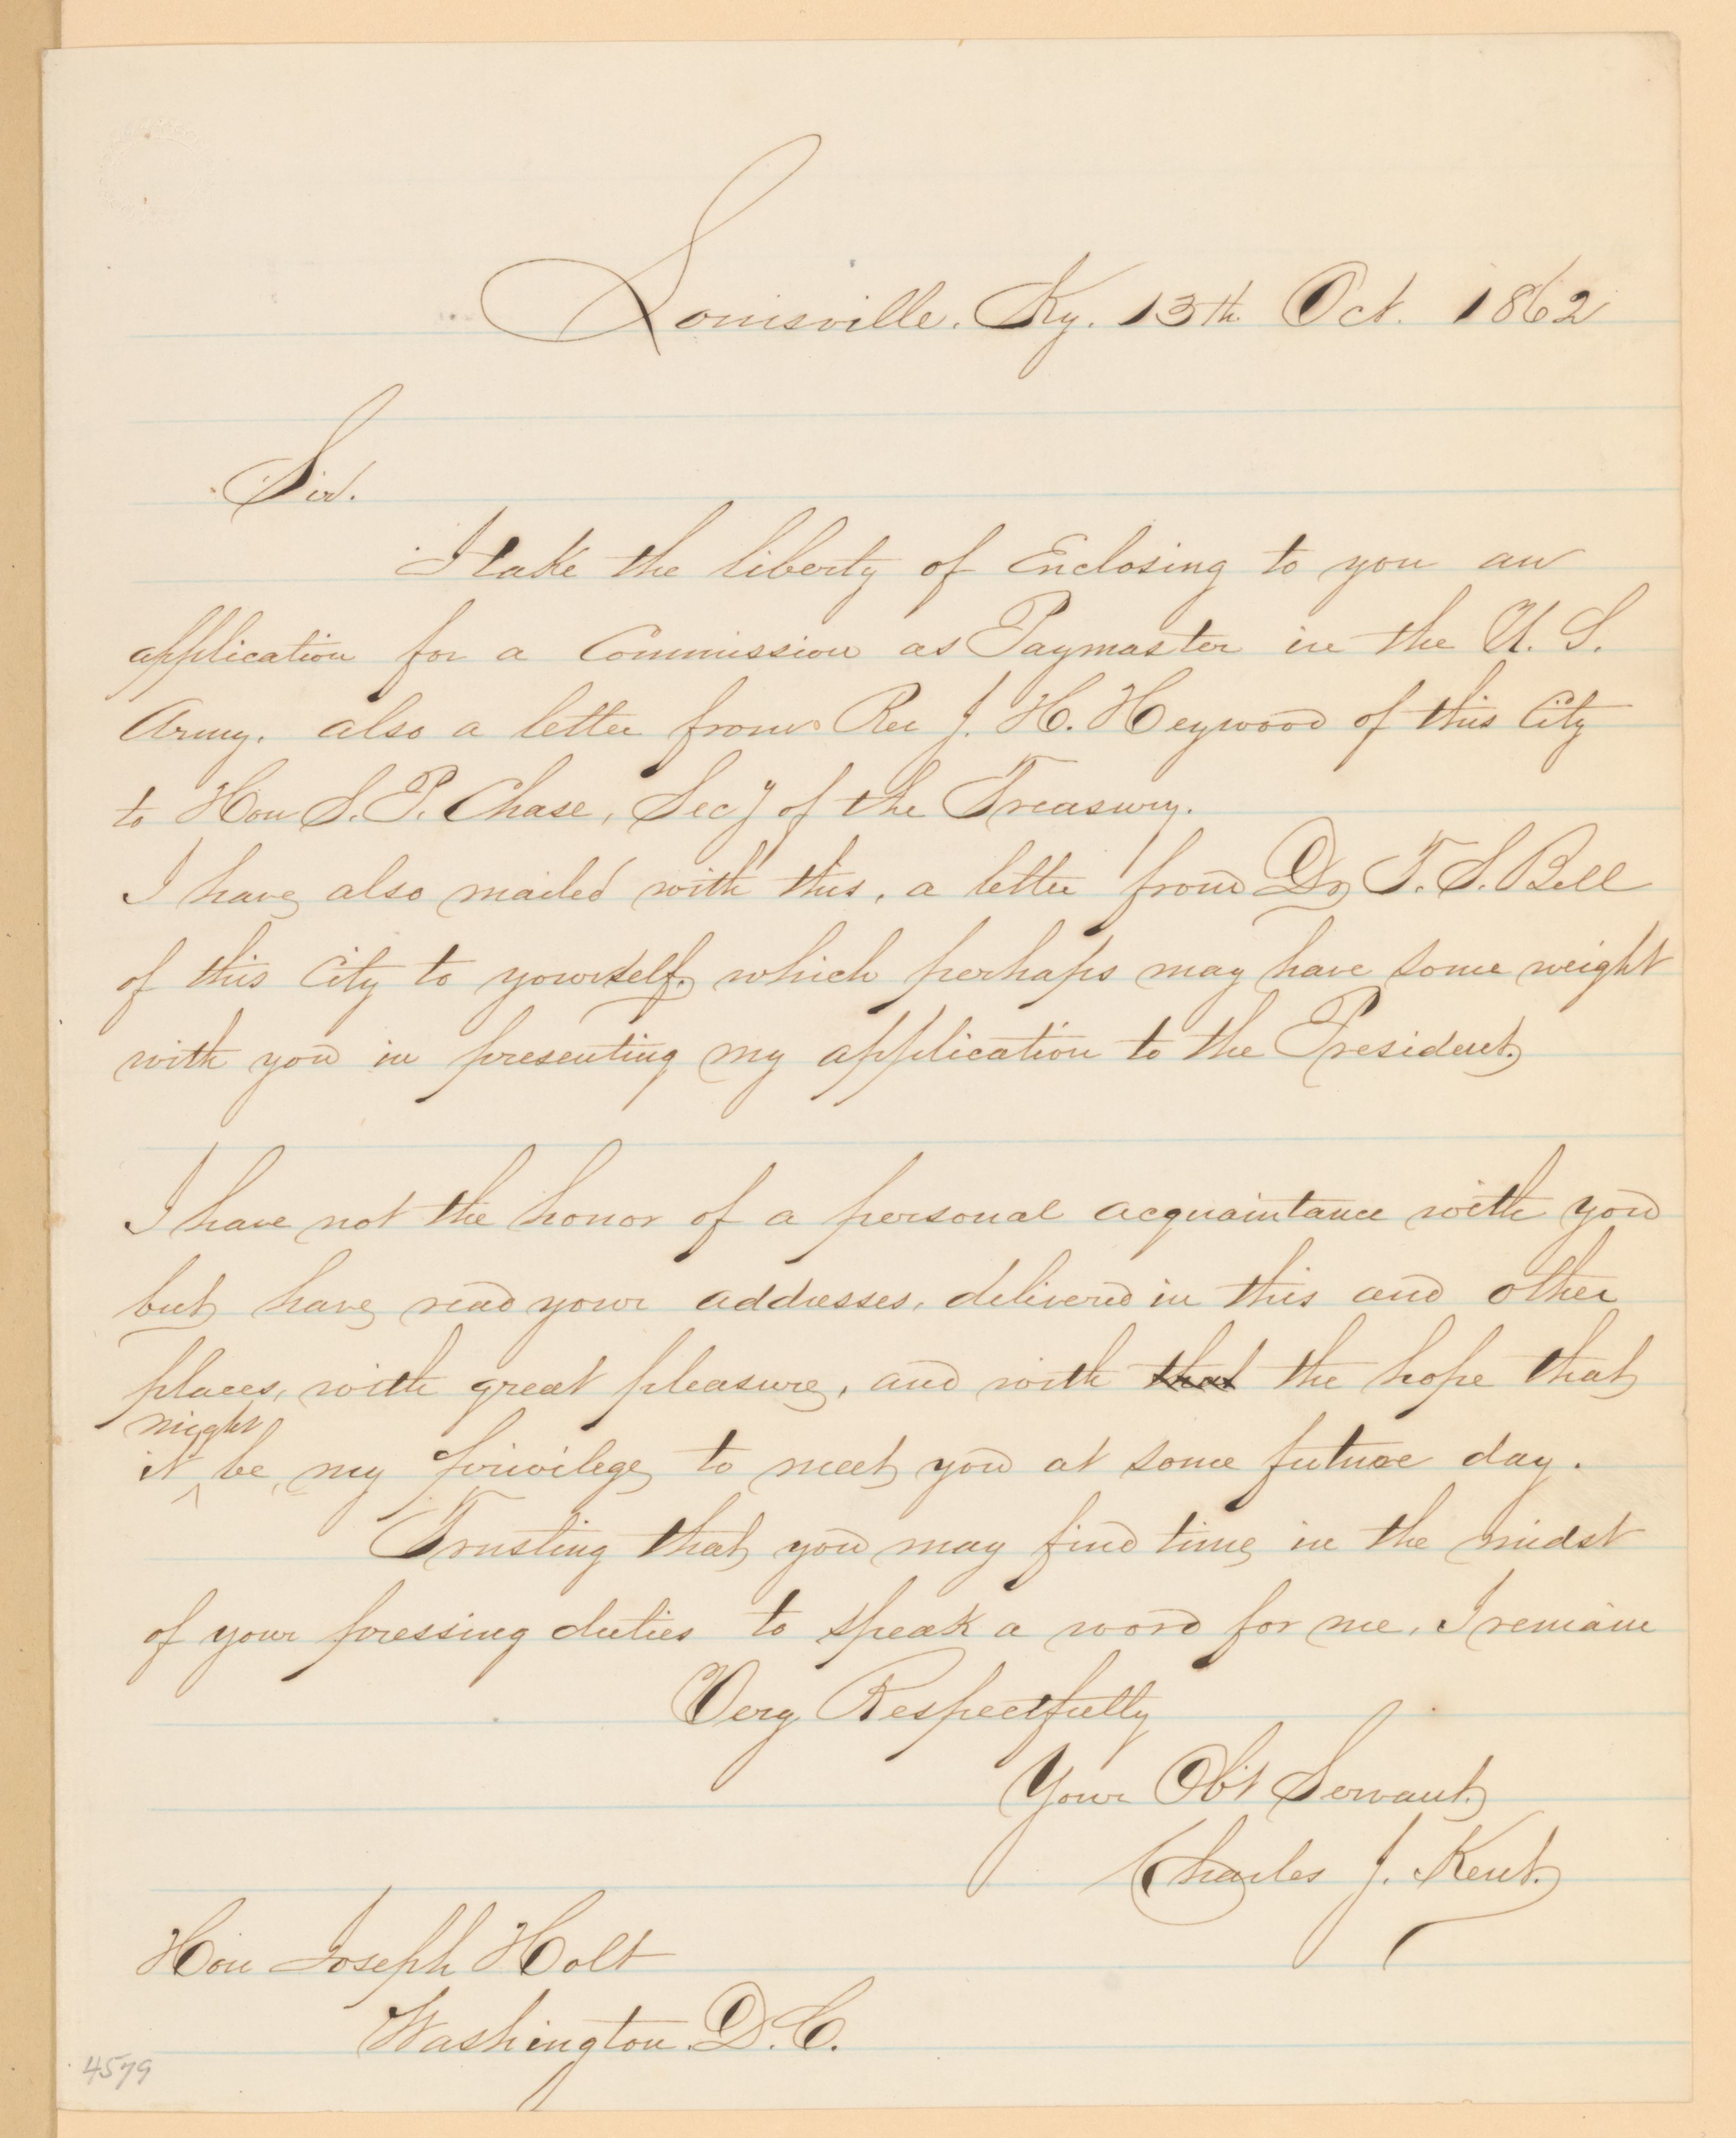 Louisville. Ky. 13th Oct. 1862
Sir.
I take the liberty of Enclosing to you an
application for a Commission as Paymaster in the U. S.
Army. also a letter from Rev J. H. Heywood of this City
to Hon S. P. Chase, Secy of the Treasury.
I have also mailed with this, a letter from Dr T. S. Bell
of this City to yourself, which perhaps may have some weight
with you in presenting my application to the President.
I have not the honor of a personal acquaintance with you
but have read your addresses, delivered in this and other
places, with great pleasure, and with that the hope that
might
it ^ be my privilege to meet you at some future day.
Trusting that you may find time in the midst
of your pressing duties to speak a word for me, I remain
Very Respectfully
Your Obt Servant.
Charles J. Kent.
Hon Joseph Holt
Washington. D. C.
4579